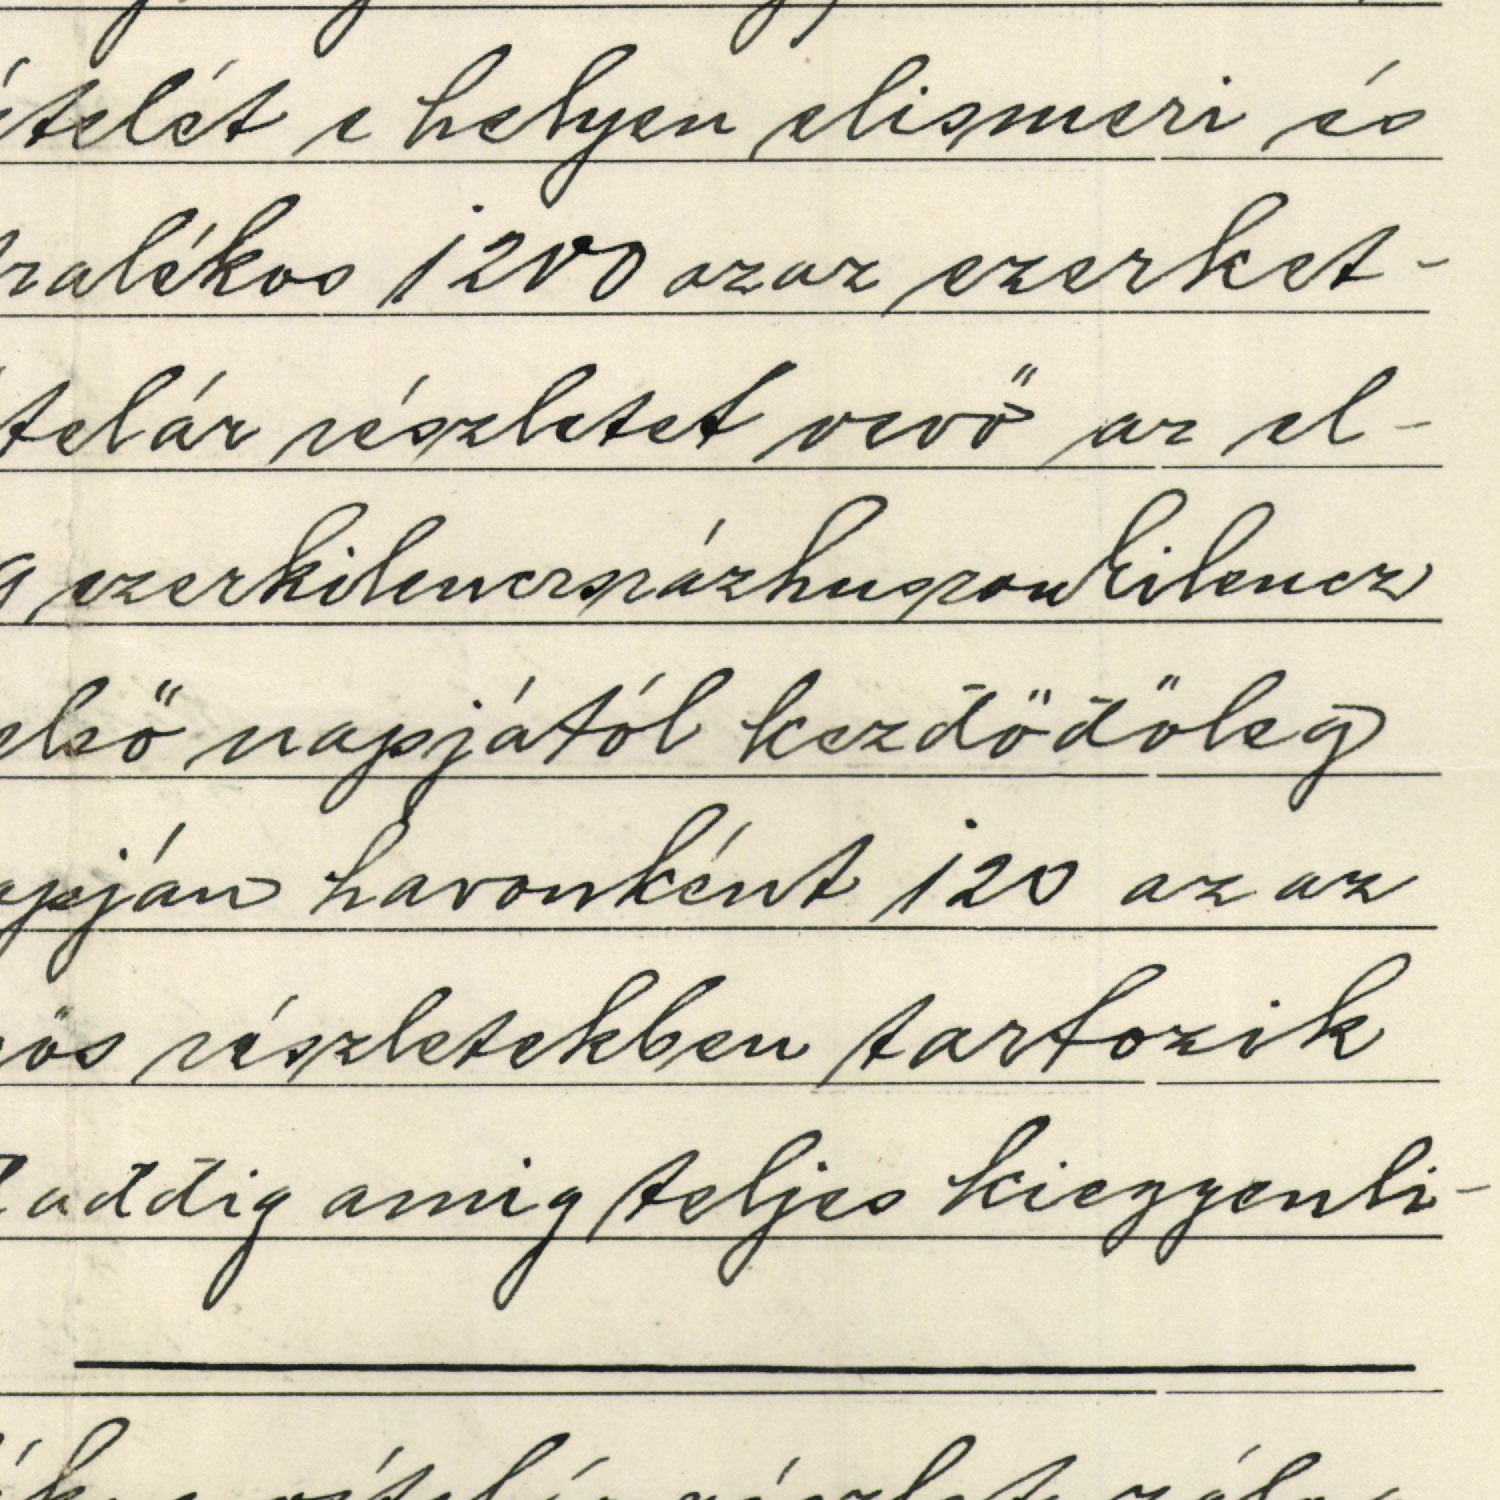 ételét e helyen elismeri és
ralékos 1200 azaz ezerket-
telár részletet vevő az el-
ezerkilenczszázhuszonkilencz
első napjától kezdödöleg
apján havonként 120 azaz
ös részletekben tartozik
addig amig teljes kiegyenli-
vételár részlet